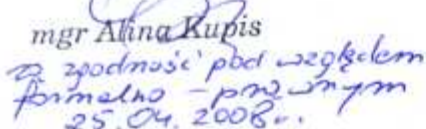 mgr Alina Kupis
za zgodność pod względem
formalno - prawnym
25.04.2008r.